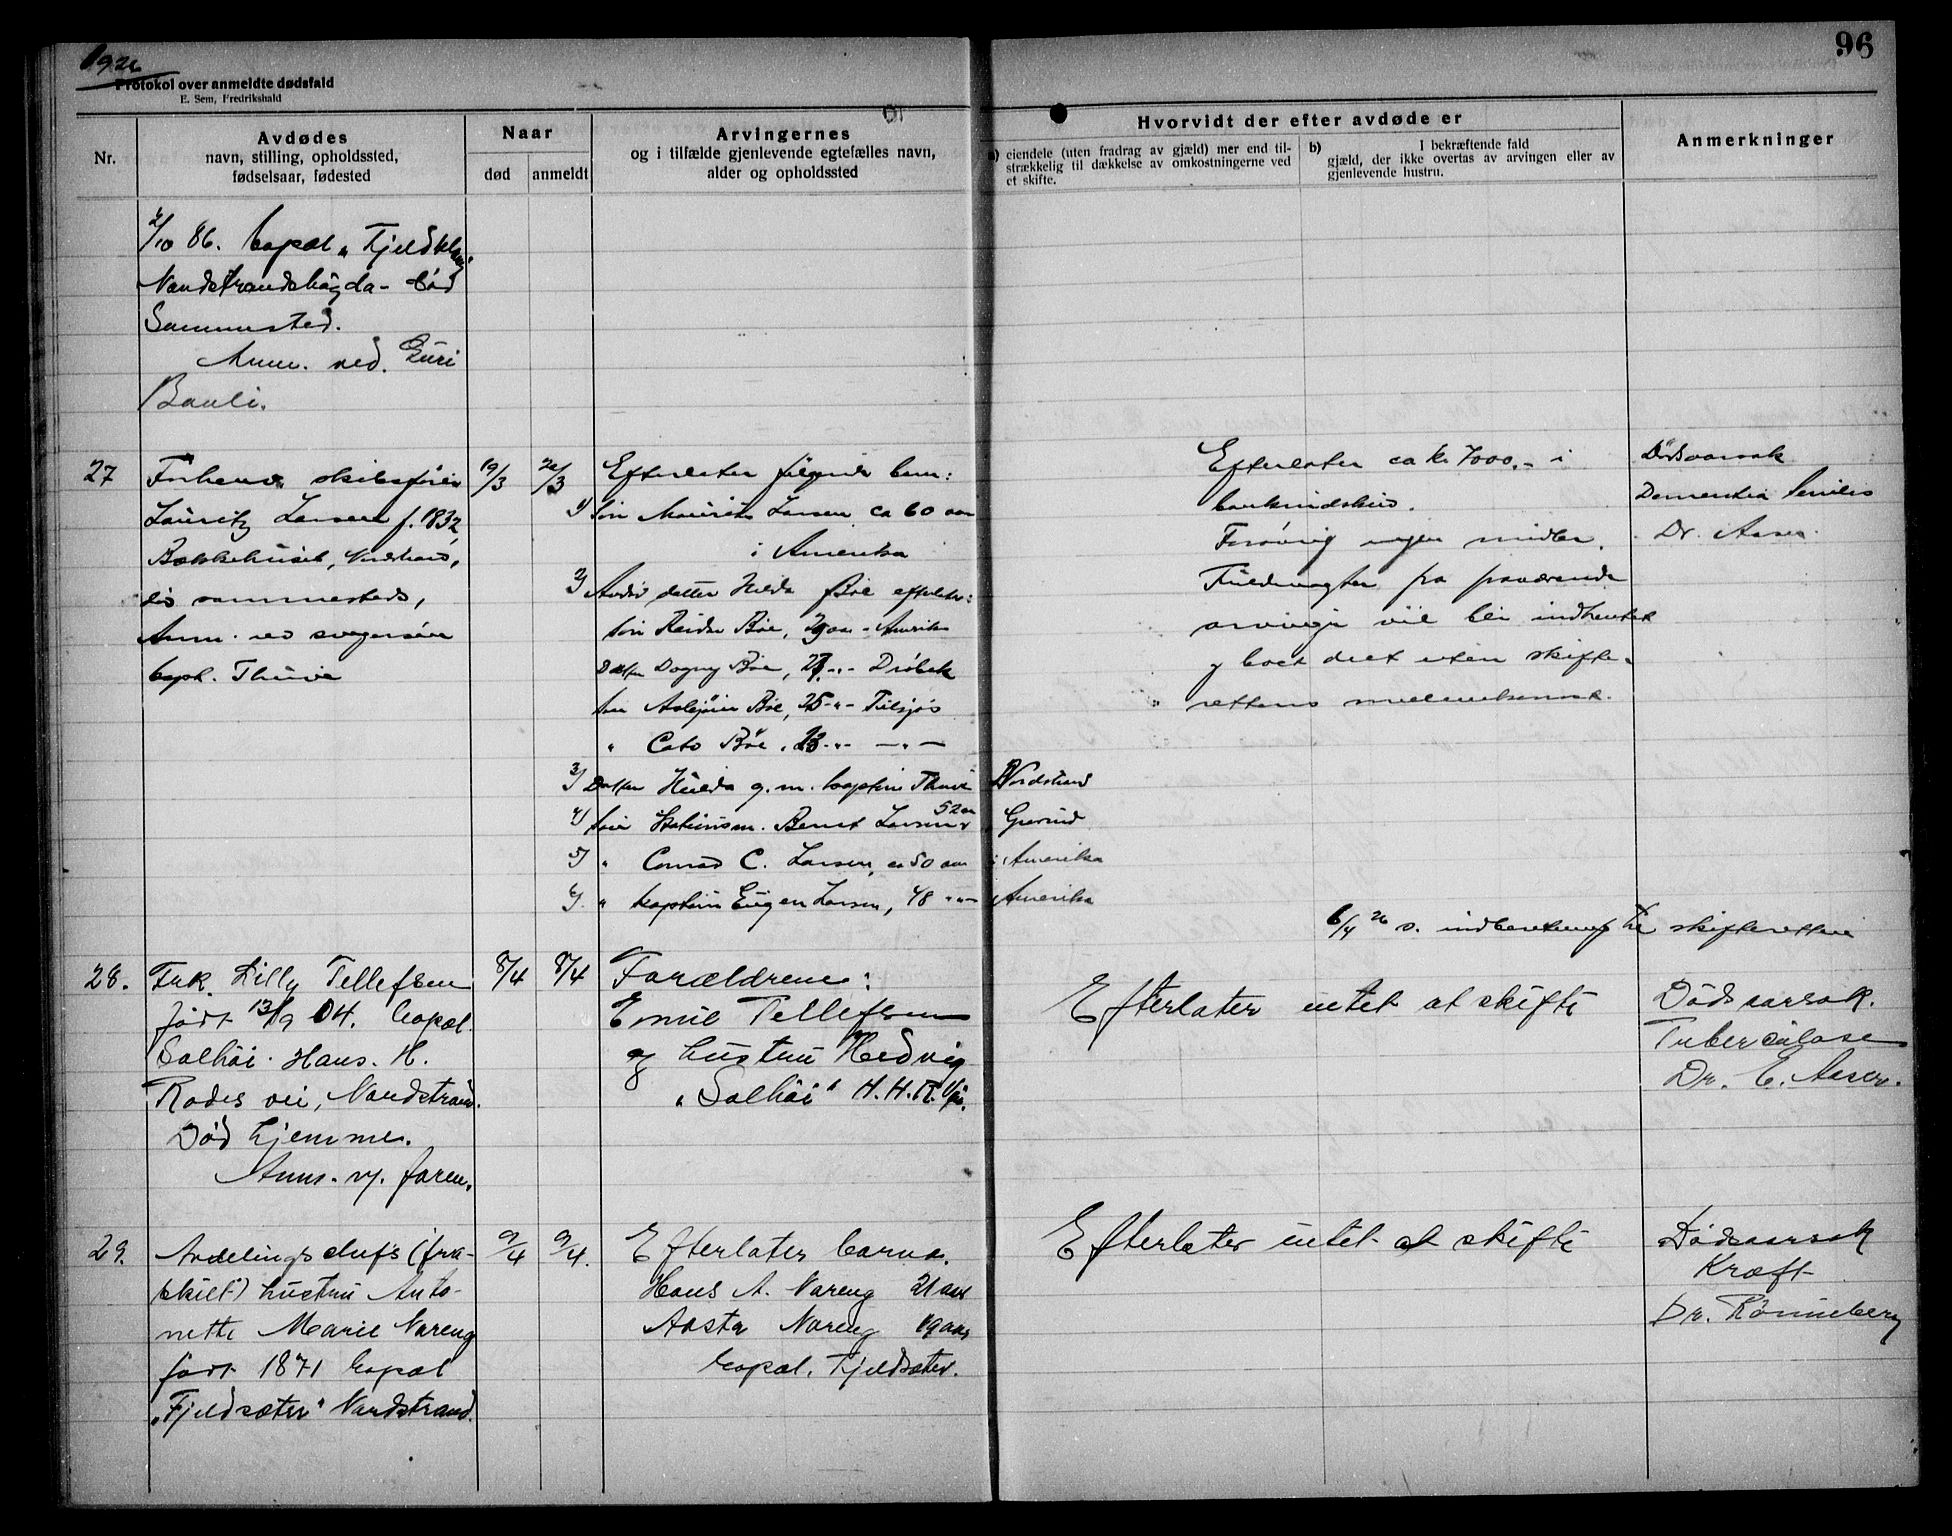 1926
Protokol over anmeldte dødsfald
E. Sem, Fredrikshald
96
Nr.
Avdødes
navn, stilling, opholdssted,
fødselsaar, fødested
Naar
død
anmeldt
Arvingernes
og i tilfælde gjenlevende egtefælles navn,
alder og opholdssted
Hvorvidt der efter avdøde er
a) eiendele (uten fradrag av gjæld) mer end til-
strækkelig til dækkelse av omkostningerne ved
et skifte.
b) I bekræftende fald
gjæld, der ikke overtas av arvingen eller av
gjenlevende hustru.
Anmerkninger
/10 86. bopæl „Fjeld
Nordstrandshøgda - død
Sammested.
Anm. ved. Guri
Bauli.
27
Forhenv. skibsfører
Lauritz Larsen f. 1832,
Bækkehuset, Nordstrand,
død sammesteds,
Anm. ved svigersøn
Capt. Thune
19/3
/3
Efterlater følgende barn:
1) Søn Maurits Larsen ca 60 aar
i Amerika
2) Avdød datter Hilda Bøe efterlater:
søn Reidar Bøe, 29 aar - Amerika
Datter Dagny Bøe, 27 -"- Drøbak
søn Asbjørn Bøe, 25 -"- Filsjøs
" Cato Bøe, 23 -"- -"-
3) Datter Hulda g. m. kaptein Thune Nordstrand
4) søn Stationsm. Bernt Larsen 52 aar Grorud
5) " Conrad C. Larsen, ca 50 aar i Amerika
6) " kaptein Eugen Larsen, 48 -"- Amerika
Efterlater ca kr. 7000.- i
bankindskud.
Forøvrig ingen midler.
Fuldmagter fra fraværende
arvinger vil bli indhentet
og boet delt uten skifte-
rettens mellemkomst.
Dødsaarsak
Dementia Senilis
Dr. Aaser.
6/4 26 s. indberetning til skifteretten
28.
Frk. Lilly Tellefsen
født 13/9 04. bopæl
Solhøi. Hans. H.
Rodes vei, Nordstrand.
Død hjemme.
Anm. v/. faren.
8/4
8/4
Forældrene:
Emil Tellefsen
og hustru Hedvig
„Solhøi" H. H. R. Vei.
Efterlater intet at skifte
Dødsaarsak.
Tuberculose
Dr. E. Aaser.
29.
Avdelingschefs (fra-
skilt) hustru Anto-
nette Marie Noreng
født 1871 bopæl
„Fjeldsæter" Nordstrand.
9/4
9/4.
Efterlater barna.
Hans A. Noreng 21 aar
Aasta Noreng 19 aar
bopæl. Fjeldsæter.
Efterlater intet at skifte
Dødsaarsak
Kræft
Dr. Rønneberg